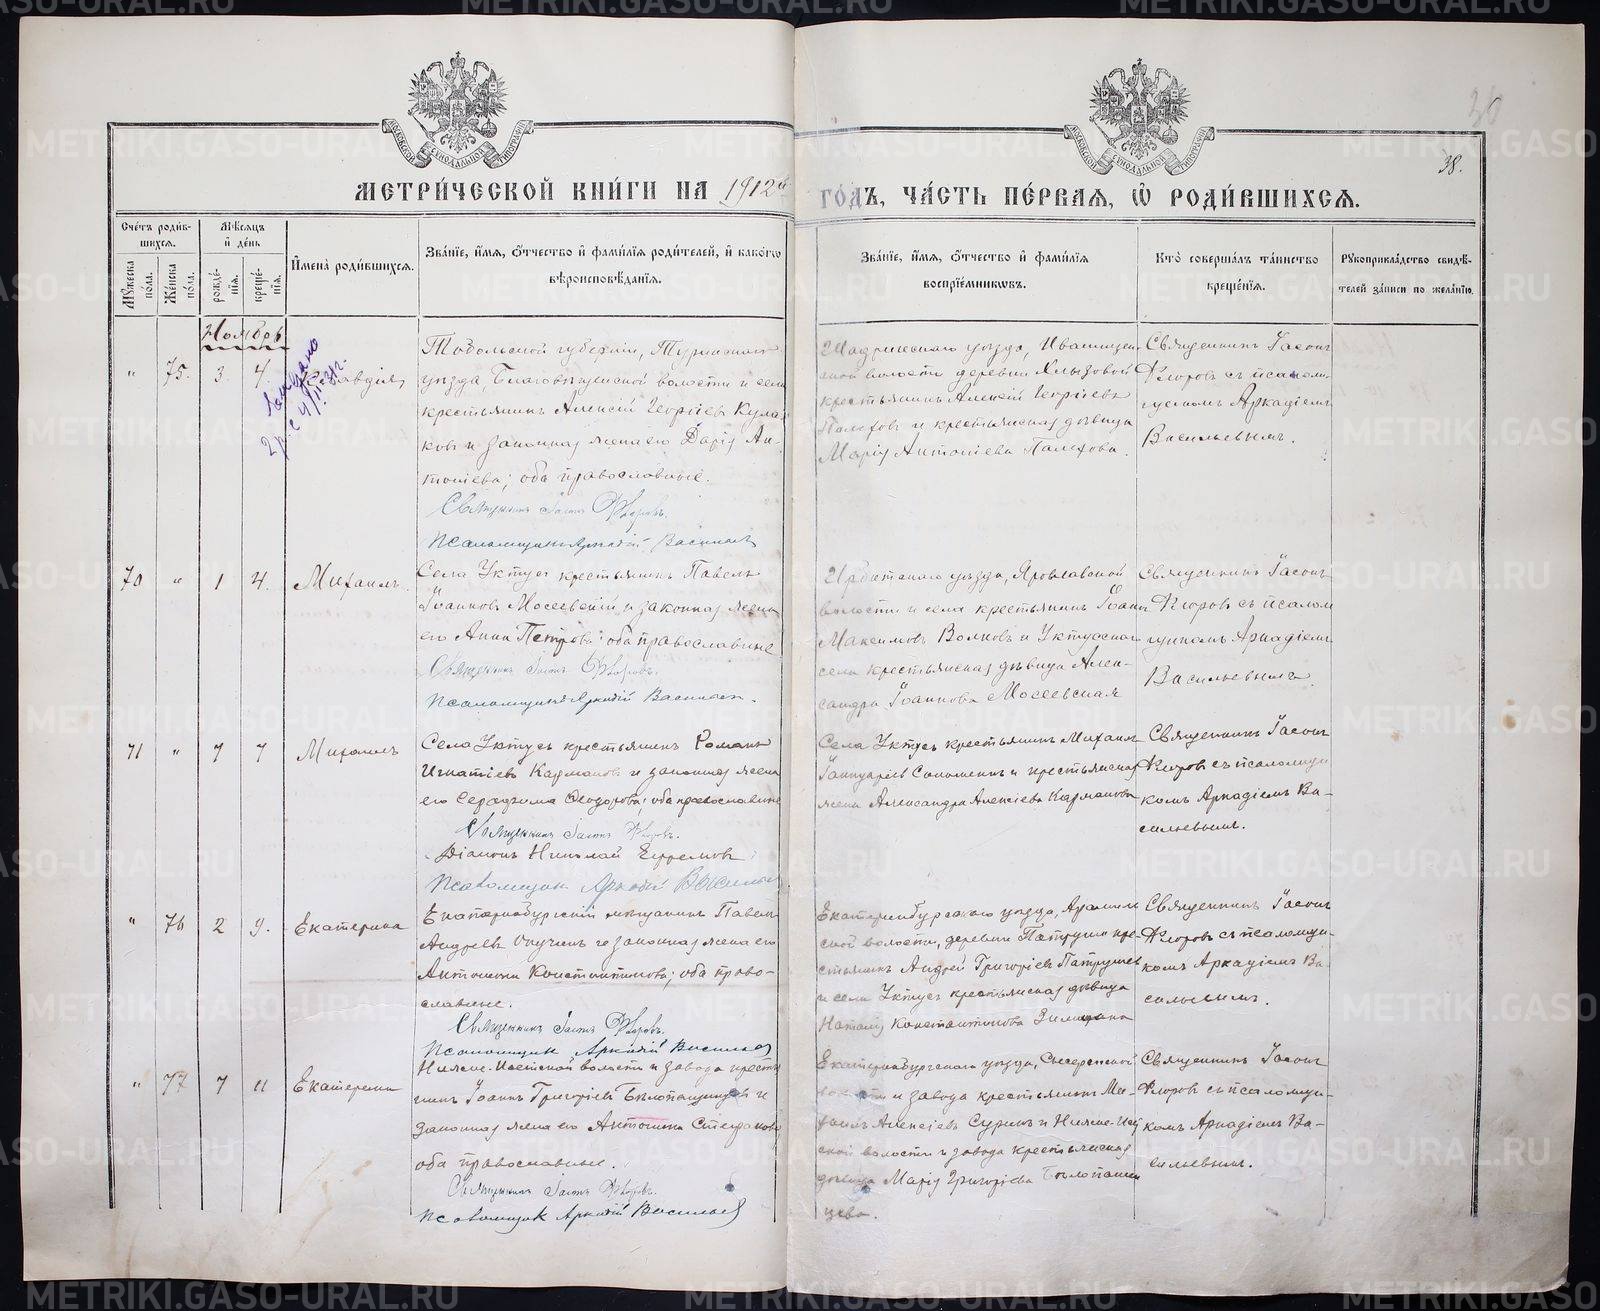 МЕТРИ́ЧЕСКОЙ КНИ́ГИ НА 1912й ГО́ДЪ, ЧА́СТЬ ПЕ́РВАЯ, Ѡ҆ РОДИ́ВШИХСЯ.
38.
Сче́тъ роди́в-
шихся.
Мѣ́сяцъ
и҆ де́нь
Мꙋ́жеска по́ла.
Же́нска по́ла.
рожде́-
нїя.
креще́-
нїя.
И҆мена̀ роди́вшихся.
Зва́нїе, и҆́мя, ѻ҆́тчество и҆ фами́лїя роди́телей, и҆ како́гѡ
вѣроисповѣ́данїя.
Зва́нїе, и҆́мя, ѻ҆́тчество и҆ фами́лїя
воспрїе́мникѡвъ.
Кто̀ соверша́лъ та́инство
креще́нїя.
Рꙋкоприкла́дство свидѣ́-
телей за́писи по жела́нїю.
Ноябрь
" 75. 3. 4. Клавдія
Тобольской губерніи, Туринскаго
уѣзда, Благовѣщенской волости и села
крестьянинъ Алексій Георгіевъ Кула-
ковъ и законная жена его Дарія Ан-
тоніева; оба православные.
Священникъ Іасонъ Флоровъ.
Псаломщикъ Аркадій Васильевъ
Шадринскаго уѣзда, Иванищев-
ской волости деревни
крестьянинъ Алексій Георгіевъ
и крестьянская дѣвица
Марія Антоніева
Священникъ Іасонъ
Флоровъ съ псалом-
щикомъ Аркадіемъ
Васильевымъ.
70 " 1 4. Михаилъ
Села Уктусъ крестьянинъ Павелъ
Іоанновъ Мосеевскій и законная жена
его Анна Петрова; оба православные
Священникъ Іасонъ Флоровъ.
Псаломщикъ Аркадій Васильевъ.
Ирбитскаго уѣзда, Ярославской
волости и села крестьянинъ Іоаннъ
Максимовъ Волковъ и Уктусскаго
села крестьянская дѣвица Алек-
сандра Іоаннова Мосеевская
Священникъ Іасонъ
Флоровъ съ псалом
щикомъ Аркадіемъ
Васильевымъ.
71 " 7 7 Михаилъ
Села Уктусъ крестьянинъ Романъ
Игнатіевъ Кармановъ и законная жена
его Серафима Ѳеодорова; оба православные
Священникъ Іасонъ Флоровъ.
Діаконъ Николай Ефремовъ
Псаломщикъ Аркадій Васильевъ
Села Уктусъ крестьянинъ Михаилъ
Іаннуаріевъ Саломеинъ и крестьянская
жена Александра Алексіева Карманова
Священникъ Іасонъ
Флоровъ съ псаломщи
комъ Аркадіемъ Ва-
сильевымъ.
" 76 2 9. Екатерина
Екатеринбургскій мѣщанинъ Павелъ
Андреевъ и законная жена его
Антонина Константинова; оба право-
славные.
Священникъ Іасонъ Флоровъ.
Псаломщикъ Аркадій Васильевъ
Екатеринбургскаго уѣзда, Арамиль
ской волости, деревни Патруши кре-
стьянинъ Андрей Григоріевъ Патрушевъ
и села Уктусъ крестьянская дѣвица
Наталія Константинова
Священникъ Іасонъ
Флоровъ съ псаломщи-
комъ Аркадіемъ Ва-
сильевымъ.
" 77 7 11 Екатерина
Нижне-Исетской волости и завода кресть
нинъ Іоаннъ Григоріевъ Бѣлопашинцевъ и
законная жена его Антонина Стефанова
оба православные.
Священникъ Іасонъ Флоровъ.
Псаломщикъ Аркадій Васильевъ
Екатеринбургскаго уѣзда, Сысертской
волости и завода крестьянинъ Ми-
хаилъ Алексіевъ Суринъ и Нижне-Исет
ской волости и завода крестьянская
дѣвица Марія Григоріева Бѣлопашин
цева.
Священникъ Іасонъ
Флоровъ съ псаломщи-
комъ Аркадіемъ Ва-
сильевымъ.
METRIKI.GASO-URAL.RU